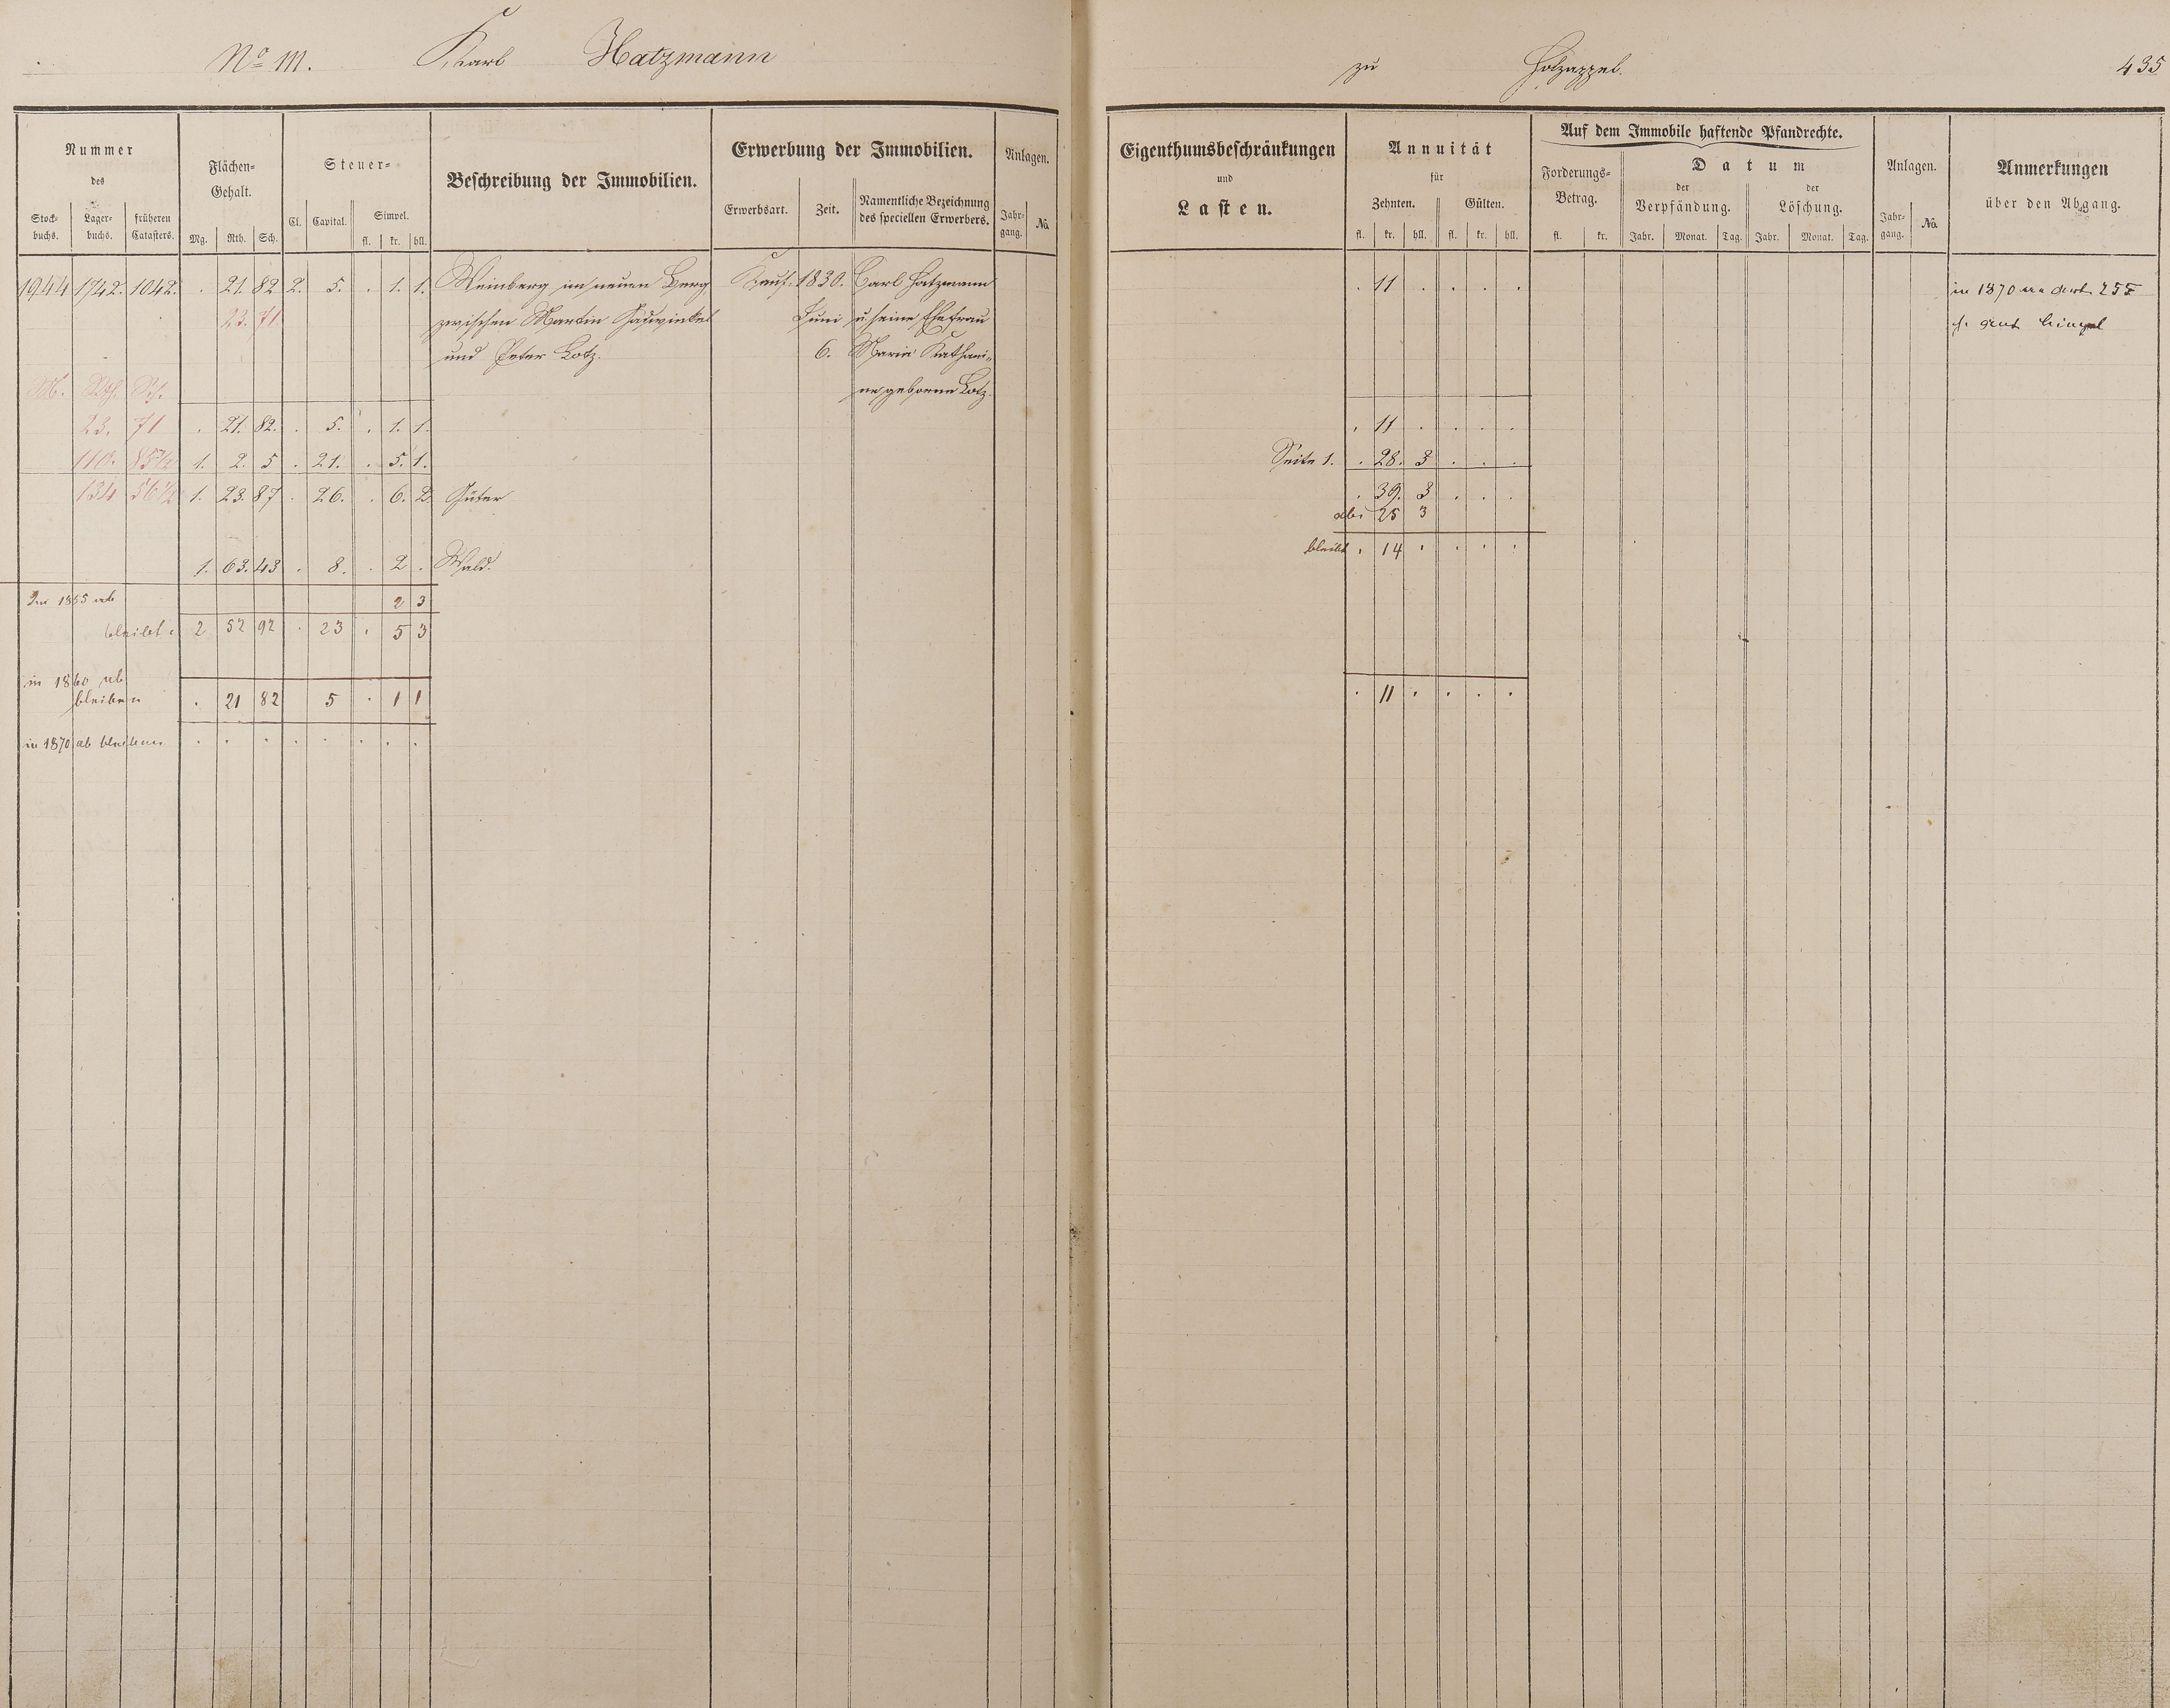 No 111. Karl Hatzmann zu Holzappel. 435
Nummer des
Stock-buchs. Lager-buchs. früheren Catasters.
Flächen-Gehalt.
Mg. Rth. Sch.
Steuer-
Cl. Capital. Simpel.
fl. kr. hll.
Beschreibung der Immobilien.
Erwerbung der Immobilien.
Erwerbsart. Zeit. Namentliche Bezeichnung des speciellen Erwerbers.
Anlagen.
Jahr-gang. No.
Eigenthumsbeschränkungen
und
Lasten.
Annuität
für
Zehnten. Gülten.
fl. kr. hll. fl. kr. hll.
Auf dem Immobile haftende Pfandrechte.
Forderungs-Betrag.
fl. kr.
Datum
der Verpfändung. der Löschung.
Jahr. Monat. Tag. Jahr. Monat. Tag.
Anlagen.
Jahr-gang. No.
Anmerkungen
über den Abgang.
1944 1742. 1042. . 21. 82 2. 5. . 1. 1. Weinberg im neuen Berg Kauf. 1830. Carl Hatzmann . 11 . . . . in 1870 255
23. 71 zwischen Martin Juni u. seine Ehefrau
und Peter Lotz. 6. Maria Kathari-
M. Rth. Sch. ne geborene Lotz.
23. 71 . 21. 82. . 5. . 1. 1. . 11 . . . .
110. 85½ 1. 2. 5 . 21. . 5. 1. Seite 1. . 28. 3 . . .
134 56½ 1. 23. 87 . 26. . 6. 2. Güter . 39. 3 . . .
ab 25 3
1. 63. 43 . 8. . 2 . Wald. bleibt . 14 . . . .
In 1855 ab 2 3
bleibt 2 52 92 . 23 . 5 3
in 1860 ab
bleiben . 21 82 5 . 1 1 . 11 . . . .
in 1870 ab bleiben . . . . . . . .